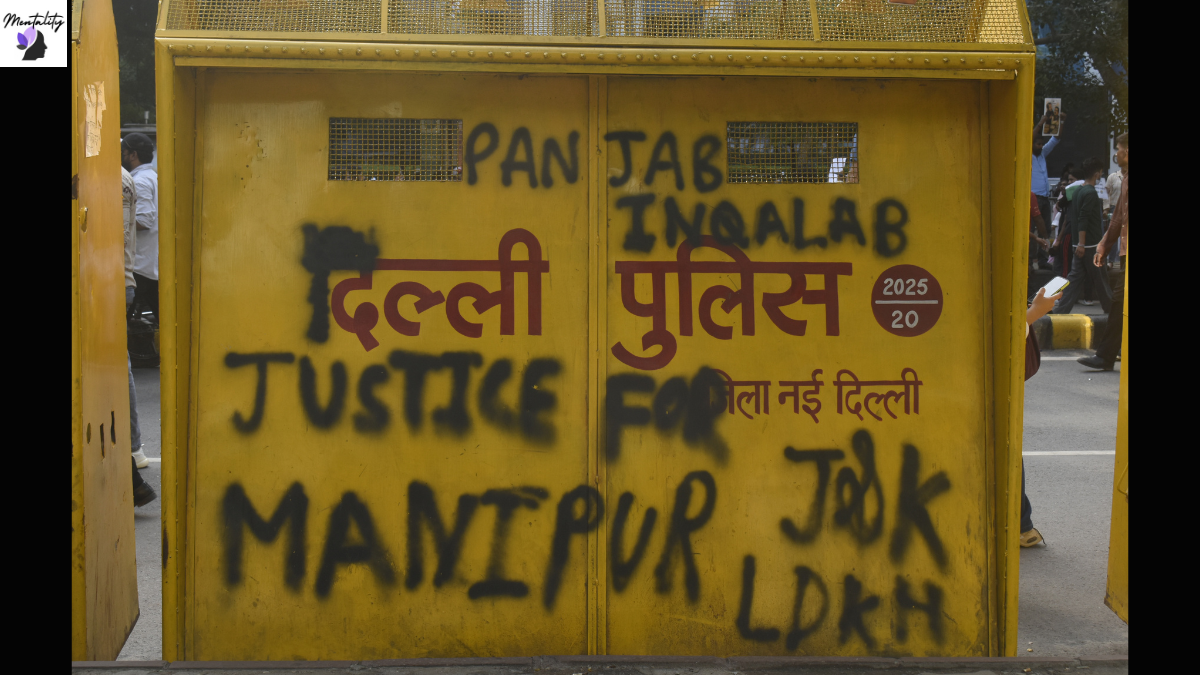 Mentality
PAN JAB
INQALAB
दिल्ली पुलिस
2025
20
JUSTICE FOR
जिला नई दिल्ली
MANIPUR
J&K
LDKH